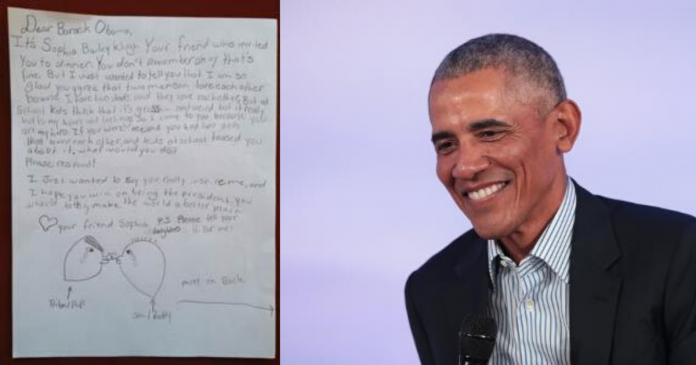 Dear Barack Obama,
It's Sophia Bailey Klugh. Your friend who invited
you to dinner. You don't remember okay that's
fine. But I just wanted to tell you that I am so
glad you agree that two men can love each other
because I have two dads and they love each other. But at
school kids think that it's gross and weird but it really
hurts my heart and feelings. So I come to you because you
are my hero. If you were me and you had two dads
that loved each other, and kids at school teased you
about it, what would you do?
Please respond!
I just wanted to say you really inspire me, and
I hope you win on being the president. you
would totally make the world a better place
your friend Sophia
P.S. Please tell your
daughters
hi for me!
more on Back